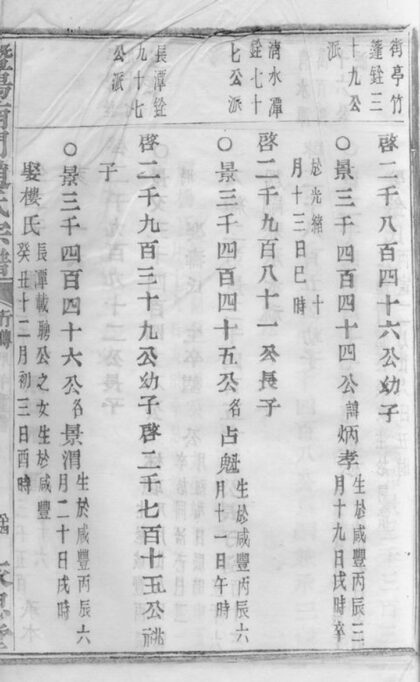 街亭竹
蓬銓三
十九公
派
啓二千八百四十六公幼子
○景三千四百四十四公諱炳孝生於咸豐丙辰三
月十九日戌時卒
於光緒 十
月十三日巳時
湳水潭
銓七十
七公派
啓二千九百八十一公長子
○景三千四百四十五公名占魁生於咸豐丙辰六
月十一日午時
長潭銓
九十七
公派
啓二千九百三十九公幼子啓二千七百十五公祧
子
○景三千四百四十六公名景渭生於咸豐丙辰六
月二十日戌時
娶樓氏長潭載聰公之女生於咸豐
癸丑十二月初三日酉時
暨陽 門 氏宗譜
行傳